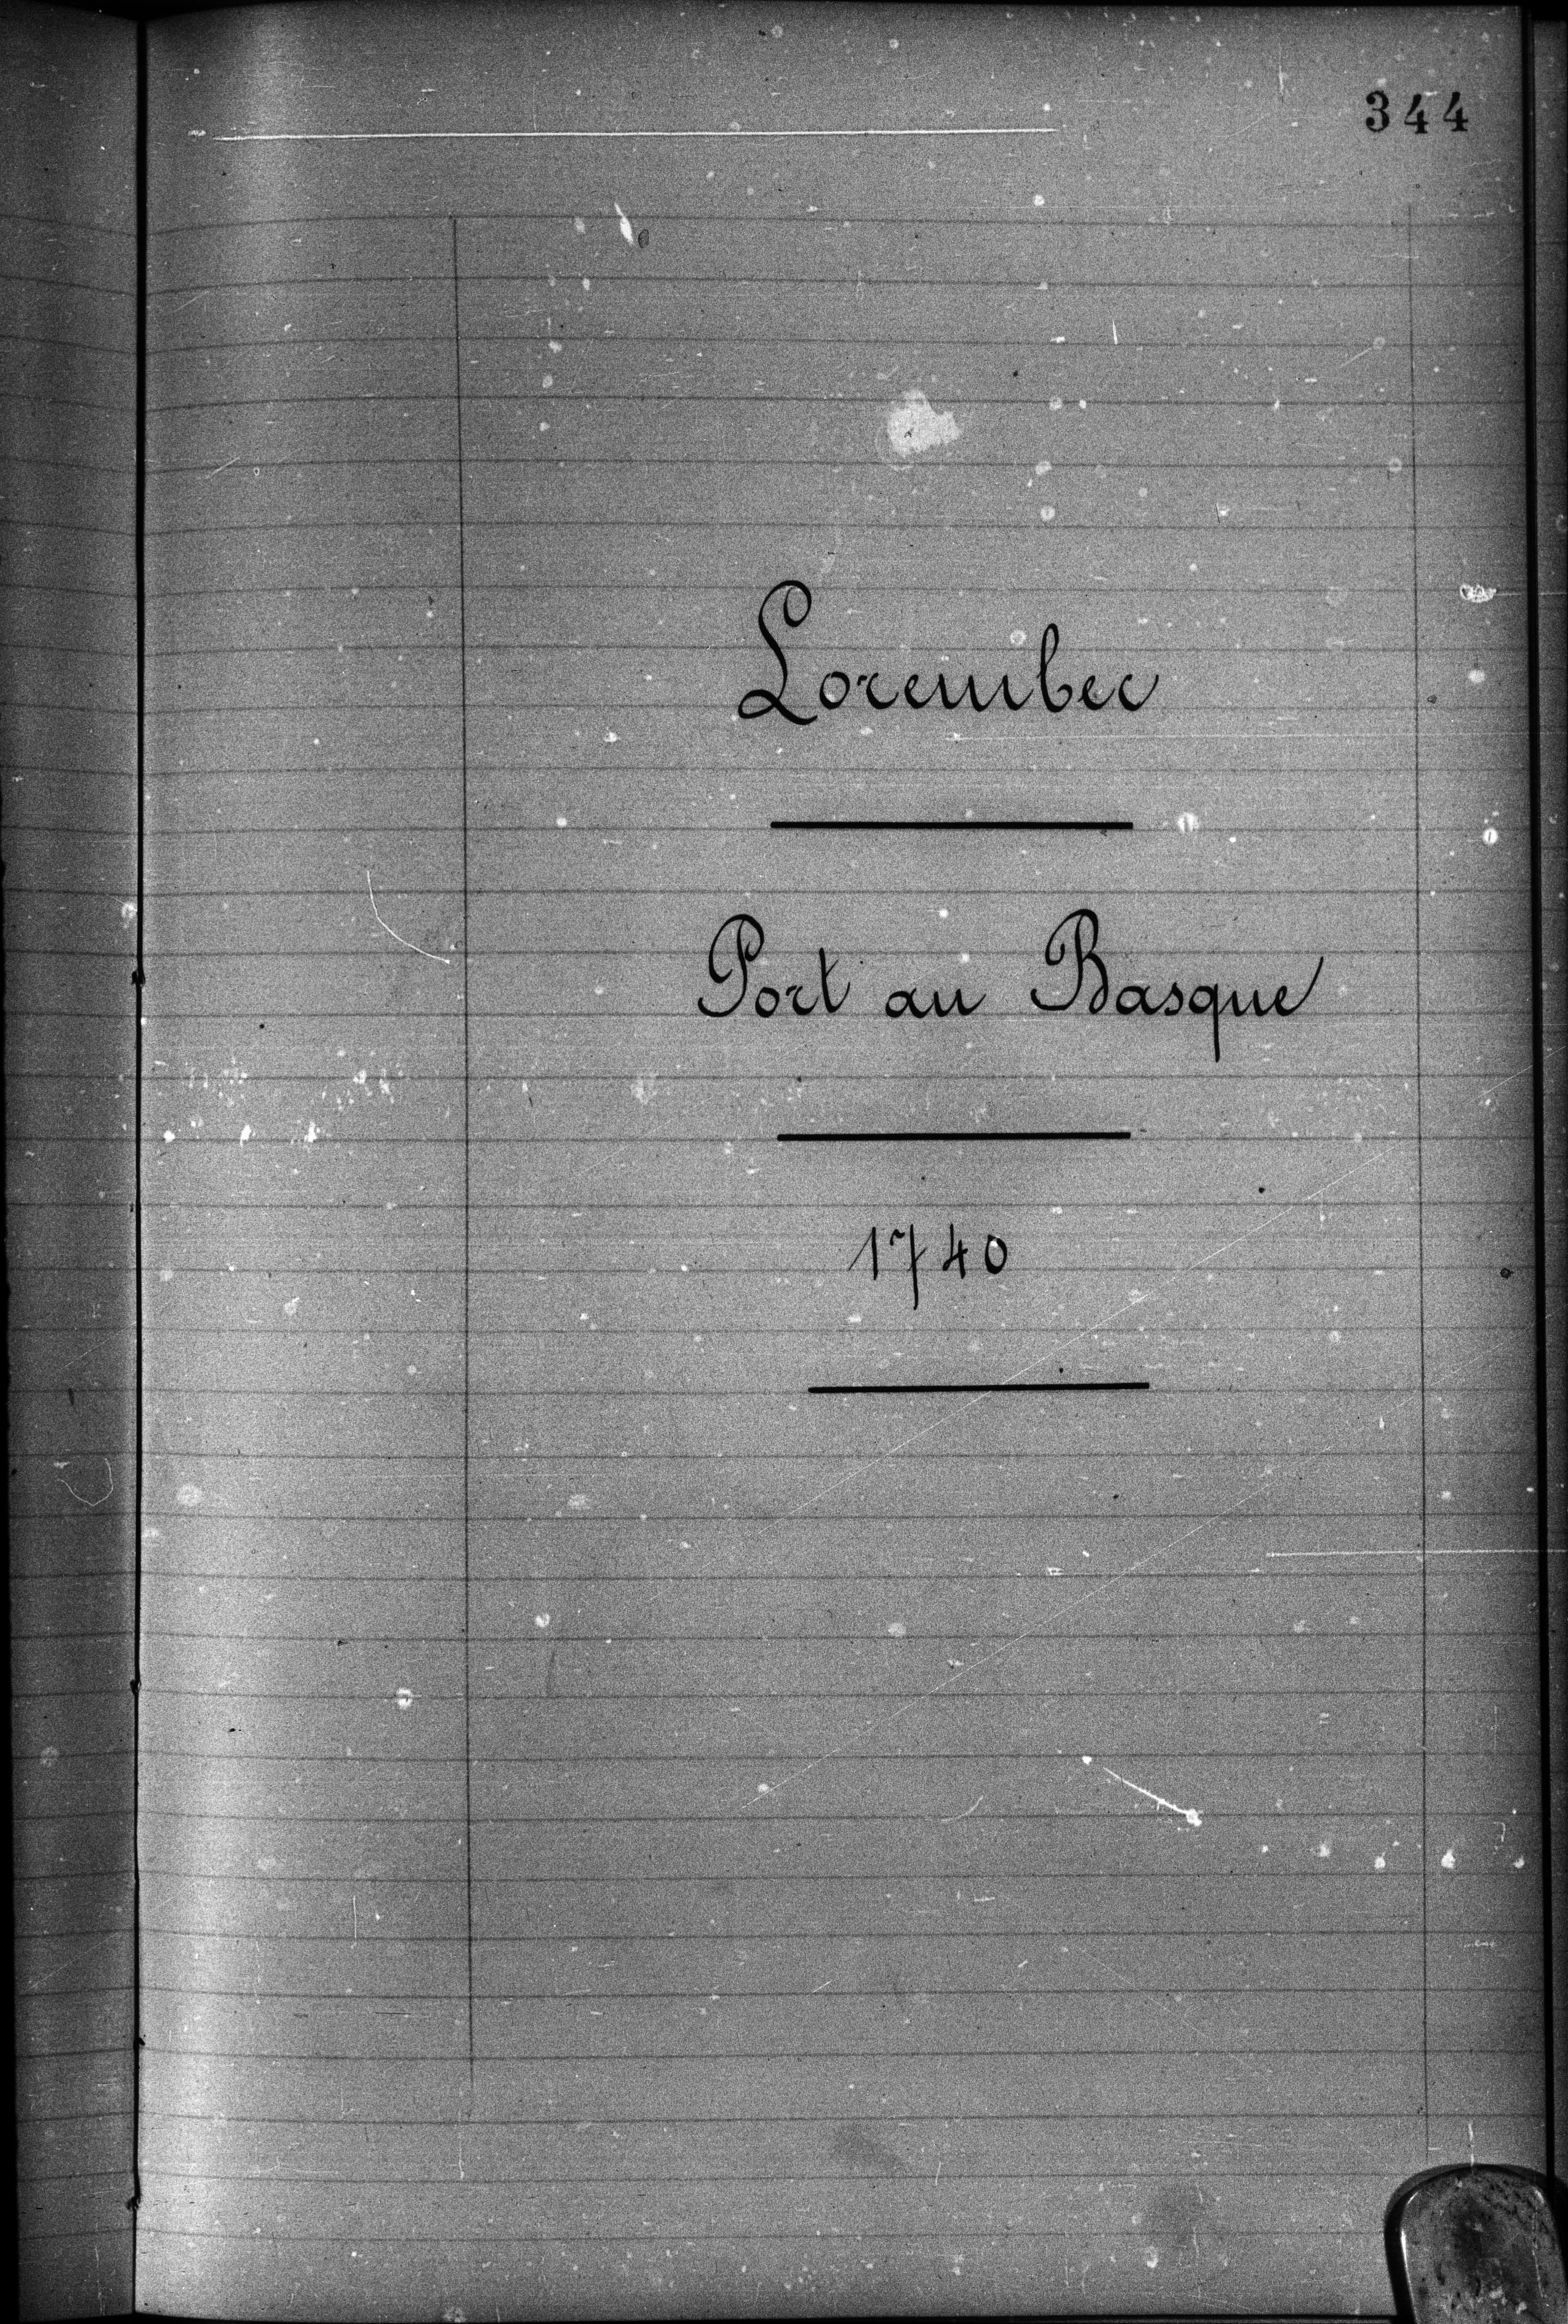 344
Lorembec
Port au Basque
1740